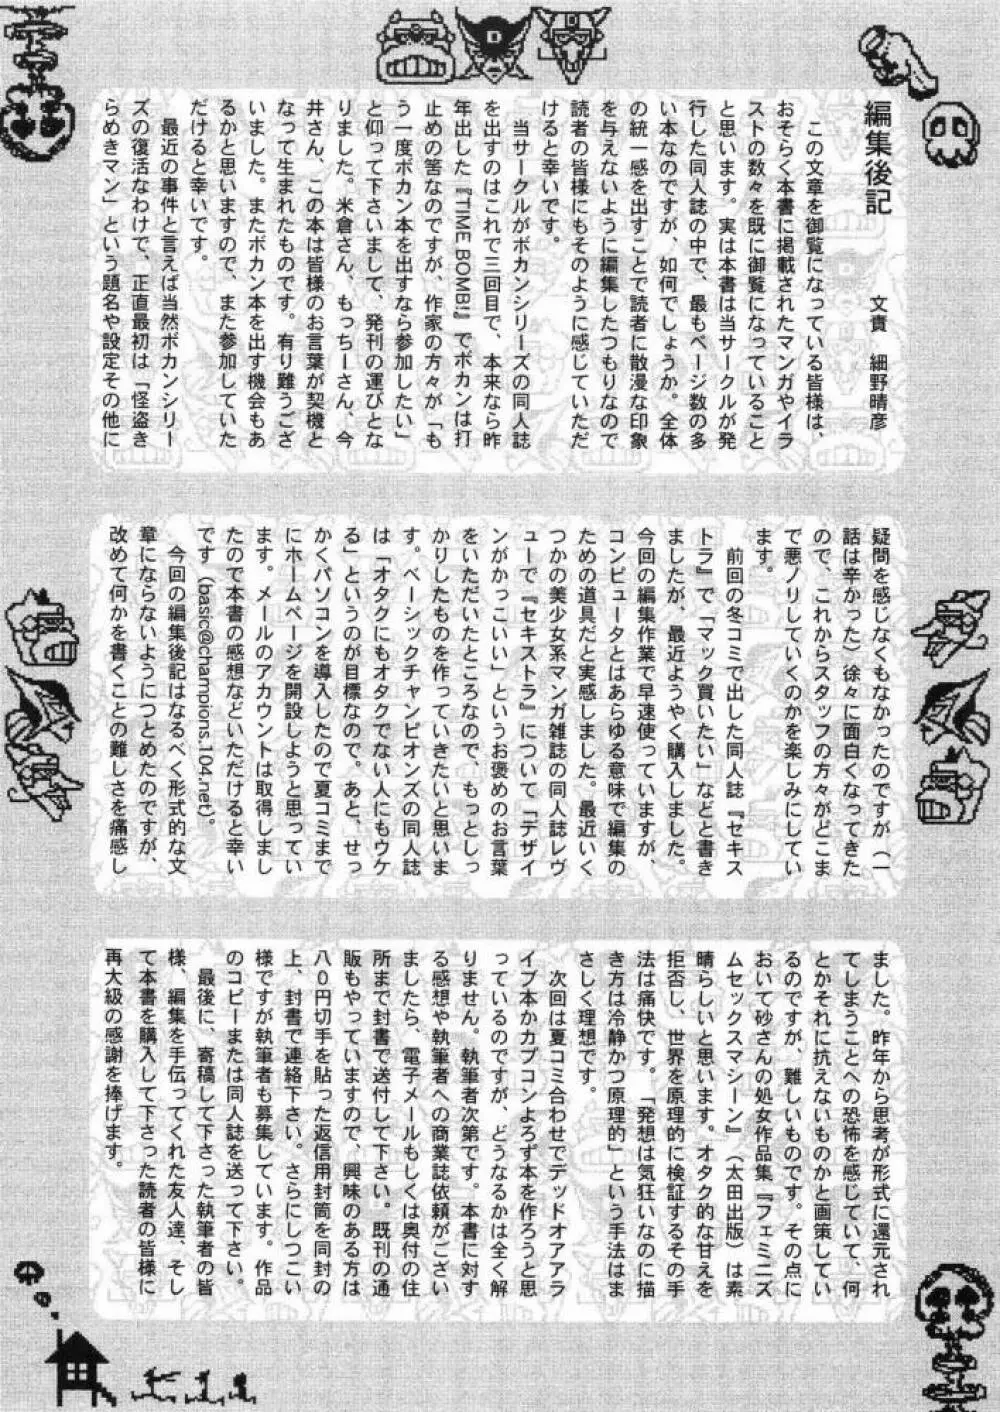 編集後記
文責 細野晴彦
この文章を御覧になっている皆様は、
おそらく本書に掲載されたマンガやイラ
ストの数々を既に御覧になっていること
と思います。実は本書は当サークルが発
行した同人誌の中で、最もページ数の多
い本なのですが、如何でしょうか。全体
の統一感を出すことで読者に散漫な印象
を与えないように編集したつもりなので
読者の皆様にもそのように感じていただ
けると幸いです。
当サークルがボカンシリーズの同人誌
を出すのはこれで三回目で、本来なら昨
年出した『TIME BOMB!!』でボカンは打
止めの筈なのですが、作家の方々が「も
う一度ボカン本を出すなら参加したい」
と仰って下さいまして、発刊の運びとな
りました。米倉さん、もっちーさん、今
井さん、この本は皆様のお言葉が契機と
なって生まれたものです。有り難うござ
いました。またボカン本を出す機会もあ
るかと思いますので、また参加していた
だけると幸いです。
最近の事件と言えば当然ボカンシリー
ズの復活なわけで、正直最初は「怪盗き
らめきマン」という題名や設定その他に
疑問を感じなくもなかったのですが（一
話は辛かった）徐々に面白くなってきた
ので、これからスタッフの方々がどこま
で悪ノリしていくのかを楽しみにしてい
ます。
前回の冬コミで出した同人誌『セキス
トラ』で「マック買いたい」などと書き
ましたが、最近ようやく購入しました。
今回の編集作業で早速使っていますが、
コンピュータとはあらゆる意味で編集の
ための道具だと実感しました。最近いく
つかの美少女系マンガ雑誌の同人誌レヴ
ューで『セキストラ』について「デザイ
ンがかっこいい」というお褒めのお言葉
をいただいたところなので、もっとしっ
かりしたものを作っていきたいと思いま
す。ベーシックチャンピオンズの同人誌
は「オタクにもオタクでない人にもウケ
る」というのが目標なので。あと、せっ
かくパソコンを導入したので夏コミまで
にホームページを開設しようと思ってい
ます。メールのアカウントは取得しまし
たので本書の感想などいただけると幸い
です（basic@champions.104.net）。
今回の編集後記はなるべく形式的な文
章にならないようにつとめたのですが、
改めて何かを書くことの難しさを痛感し
ました。昨年から思考が形式に還元され
てしまうことへの恐怖を感じていて、何
とかそれに抗えないものかと画策してい
るのですが、難しいものです。その点に
おいて砂さんの処女作品集『フェミニズ
ムセックスマシーン』（太田出版）は素
晴らしいと思います。オタク的な甘えを
拒否し、世界を原理的に検証するその手
法は痛快です。「発想は気狂いなのに描
き方は冷静かつ原理的」という手法はま
さしく理想です。
次回は夏コミ合わせでデッドオアアラ
イブ本かカプコンよろず本を作ろうと思
っているのですが、どうなるかは全く解
りません。執筆者次第です。本書に対す
る感想や執筆者への商業誌依頼がござい
ましたら、電子メールもしくは奥付の住
所まで封書で送付して下さい。既刊の通
販もやっていますので、興味のある方は
八〇円切手を貼った返信用封筒を同封の
上、封書で連絡下さい。さらにしつこい
様ですが執筆者も募集しています。作品
のコピーまたは同人誌を送って下さい。
最後に、寄稿して下さった執筆者の皆
様、編集を手伝ってくれた友人達、そし
て本書を購入して下さった読者の皆様に
再大級の感謝を捧げます。